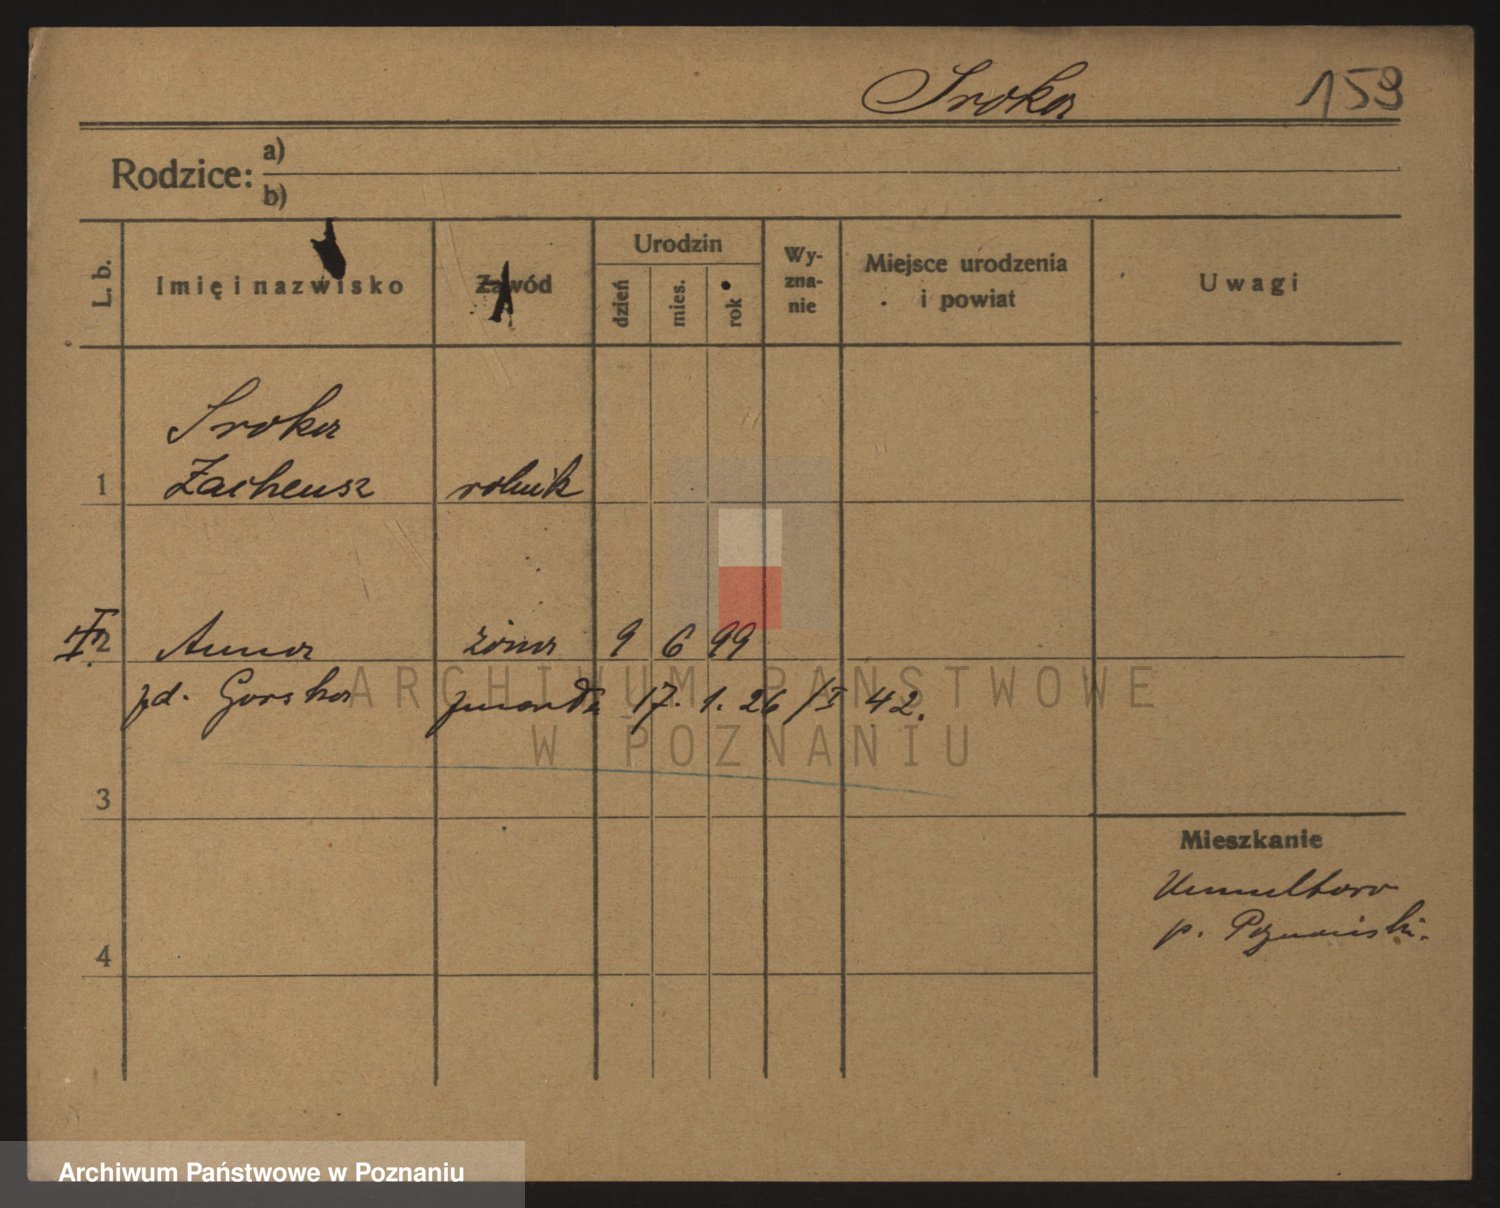 Sroka 159
Rodzice: a)
b)
L. b. Imię i nazwisko Zawód Urodzin dzień mies. rok Wy-zna-nie Miejsce urodzenia i powiat Uwagi
Sroka
1 Zacheusz rolnik
2 Anna żona 9 6 99
zd. Gorska zmarła 17. 1. 26 /I 42.
ARCHIWUM PAŃSTWOWE
W POZNANIU
3
Mieszkanie
Umultowo
p. Poznański.
4
Archiwum Państwowe w Poznaniu